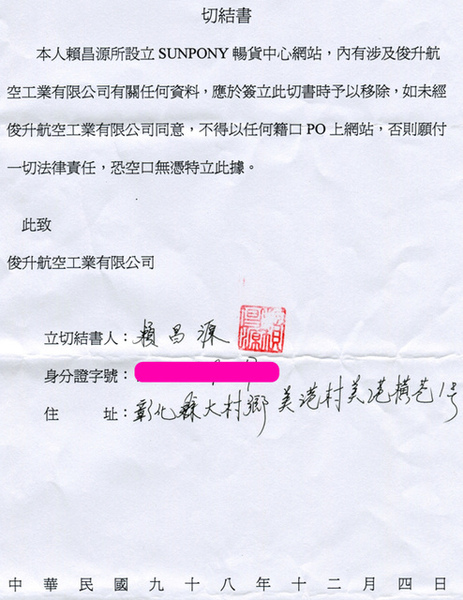 切結書
本人賴昌源所設立 SUNPONY 暢貨中心網站，內有涉及俊升航
空工業有限公司有關任何資料，應於簽立此切書時予以移除，如未經
俊升航空工業有限公司同意，不得以任何籍口 PO 上網站，否則願付
一切法律責任，恐空口無憑特立此據。
此致
俊升航空工業有限公司
立切結書人：賴昌源
身分證字號：
住 址：彰化縣大村鄉美港村美港橫巷1号
中華民國九十八年十二月四日